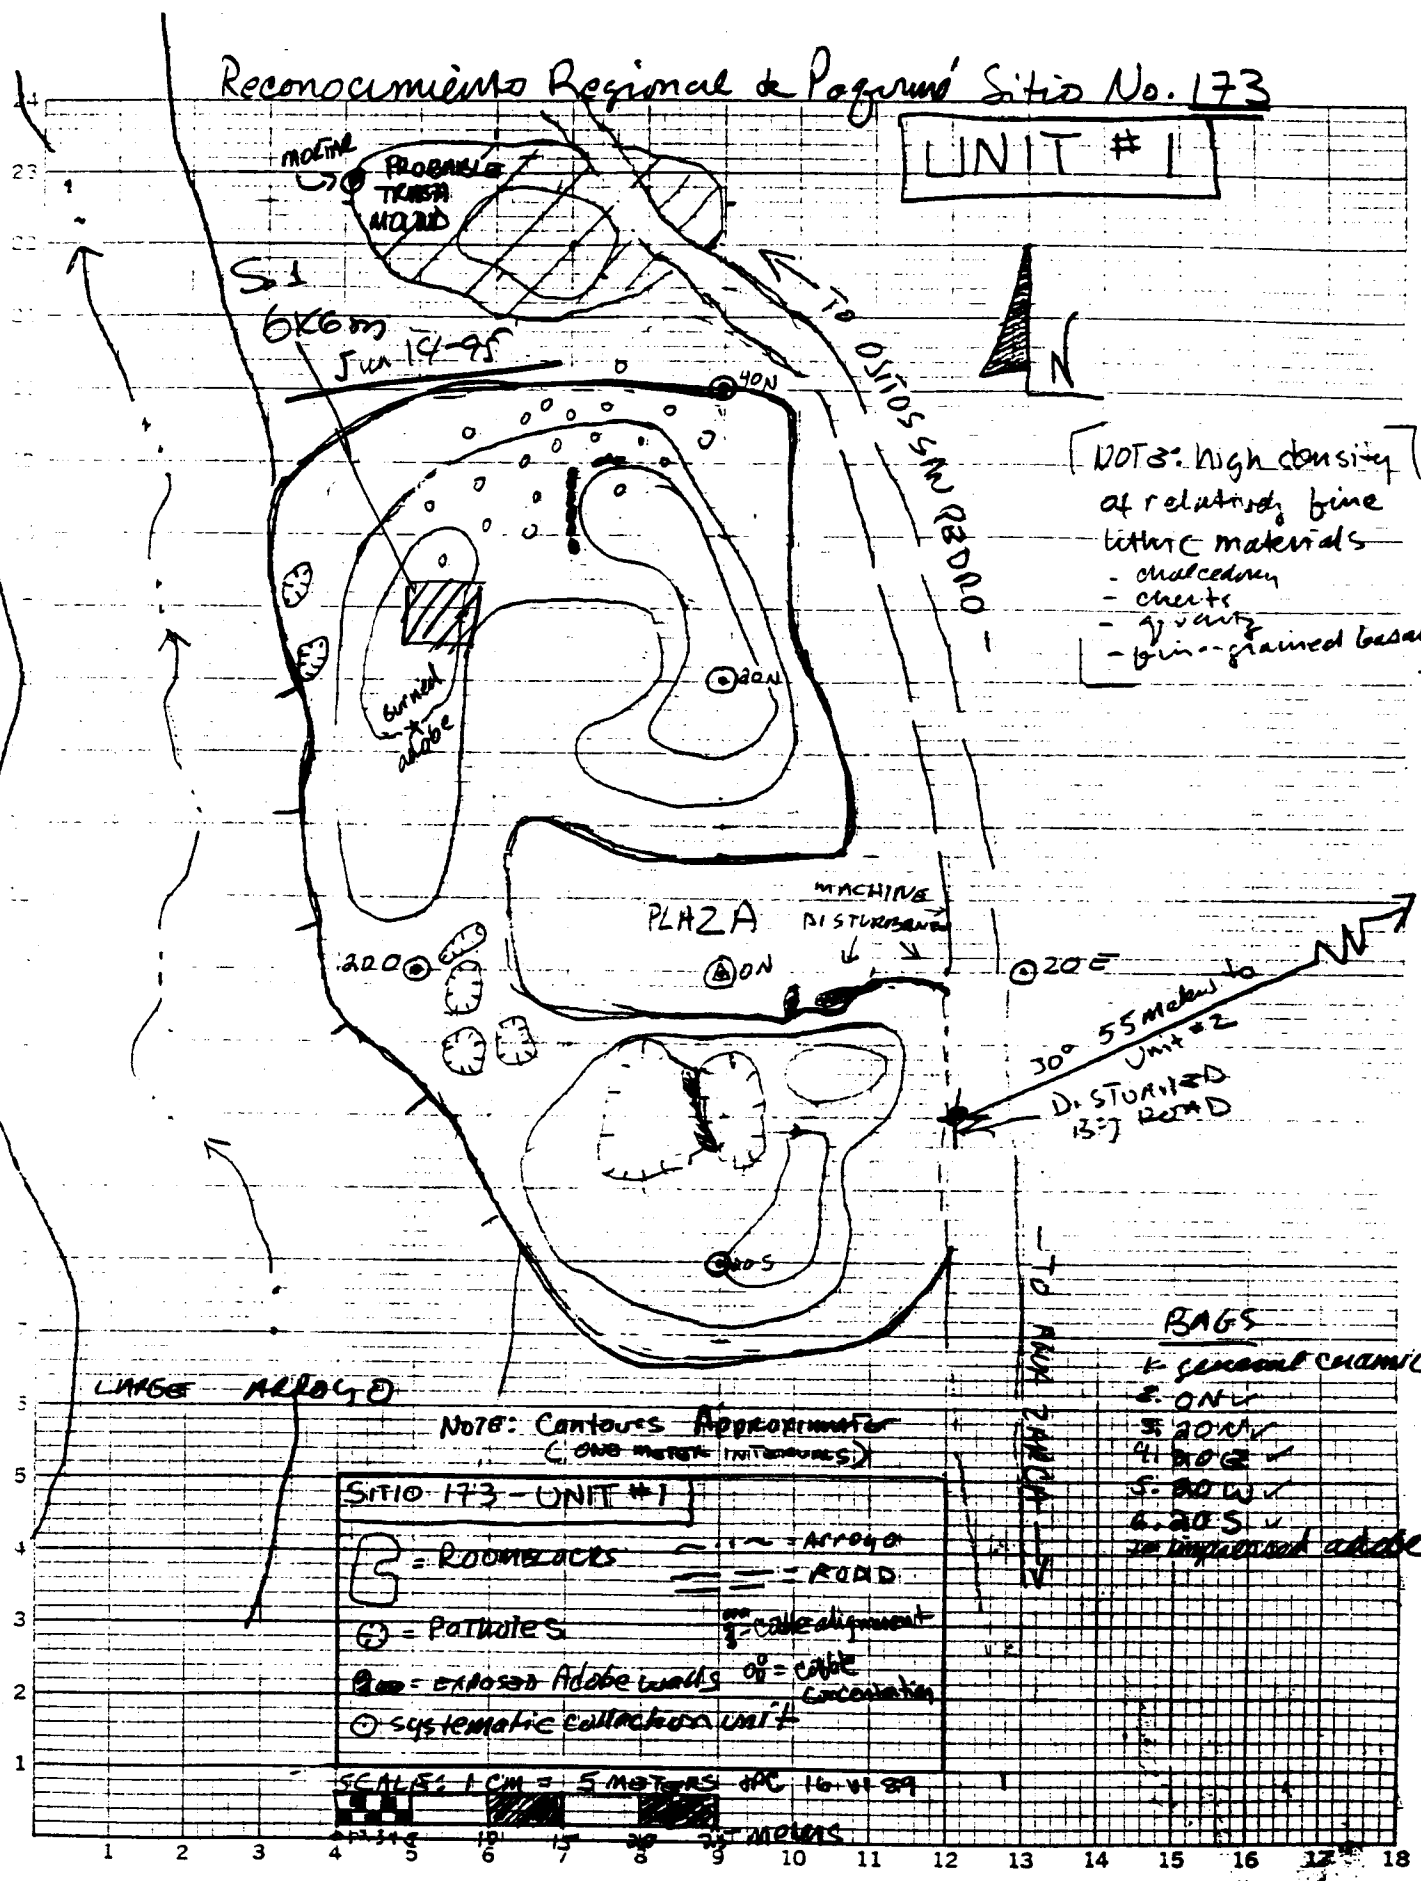 Reconocimiento Regional de Paquimé Sitio No. 173
UNIT #1
MORTAR
PROBABLE
TRASH
MOUND
S.1
6x6m
Jun 14-95
TO OSITOS SAN PEDRO
N
40N
NOTE: high density
of relatively fine
lithic materials
- chalcedony
- cherts
- quartz
- fine-grained
20N
burned
adobe
PLAZA
MACHINE
DISTURBANCE
20O
0N
20E
30° 55 Meters to
Unit #2
DISTURBED
BY ROAD
20S
TO ANA ZARCA
BAGS
1. general ceramic
2. ON ✓
3. 20N ✓
4. 20E ✓
5. 20W ✓
6. 20S ✓
impressed adobe
LARGE ARROYO
NOTE: Contours Approximate
(ONE METER INTERVALS)
SITIO 173 - UNIT #1
= ROOMBLOCKS
= Arroyo
= ROAD
= Potholes
= cobble alignment
= EXPOSED Adobe walls
= cobble
concentration
systematic collection unit
SCALE: 1 CM = 5 METERS JPC 16 VI 89
0 1 2 3 4 5 10 15 20 25 meters
24
23
22
5
4
3
2
1
1 2 3 4 5 6 7 8 9 10 11 12 13 14 15 16 17 18